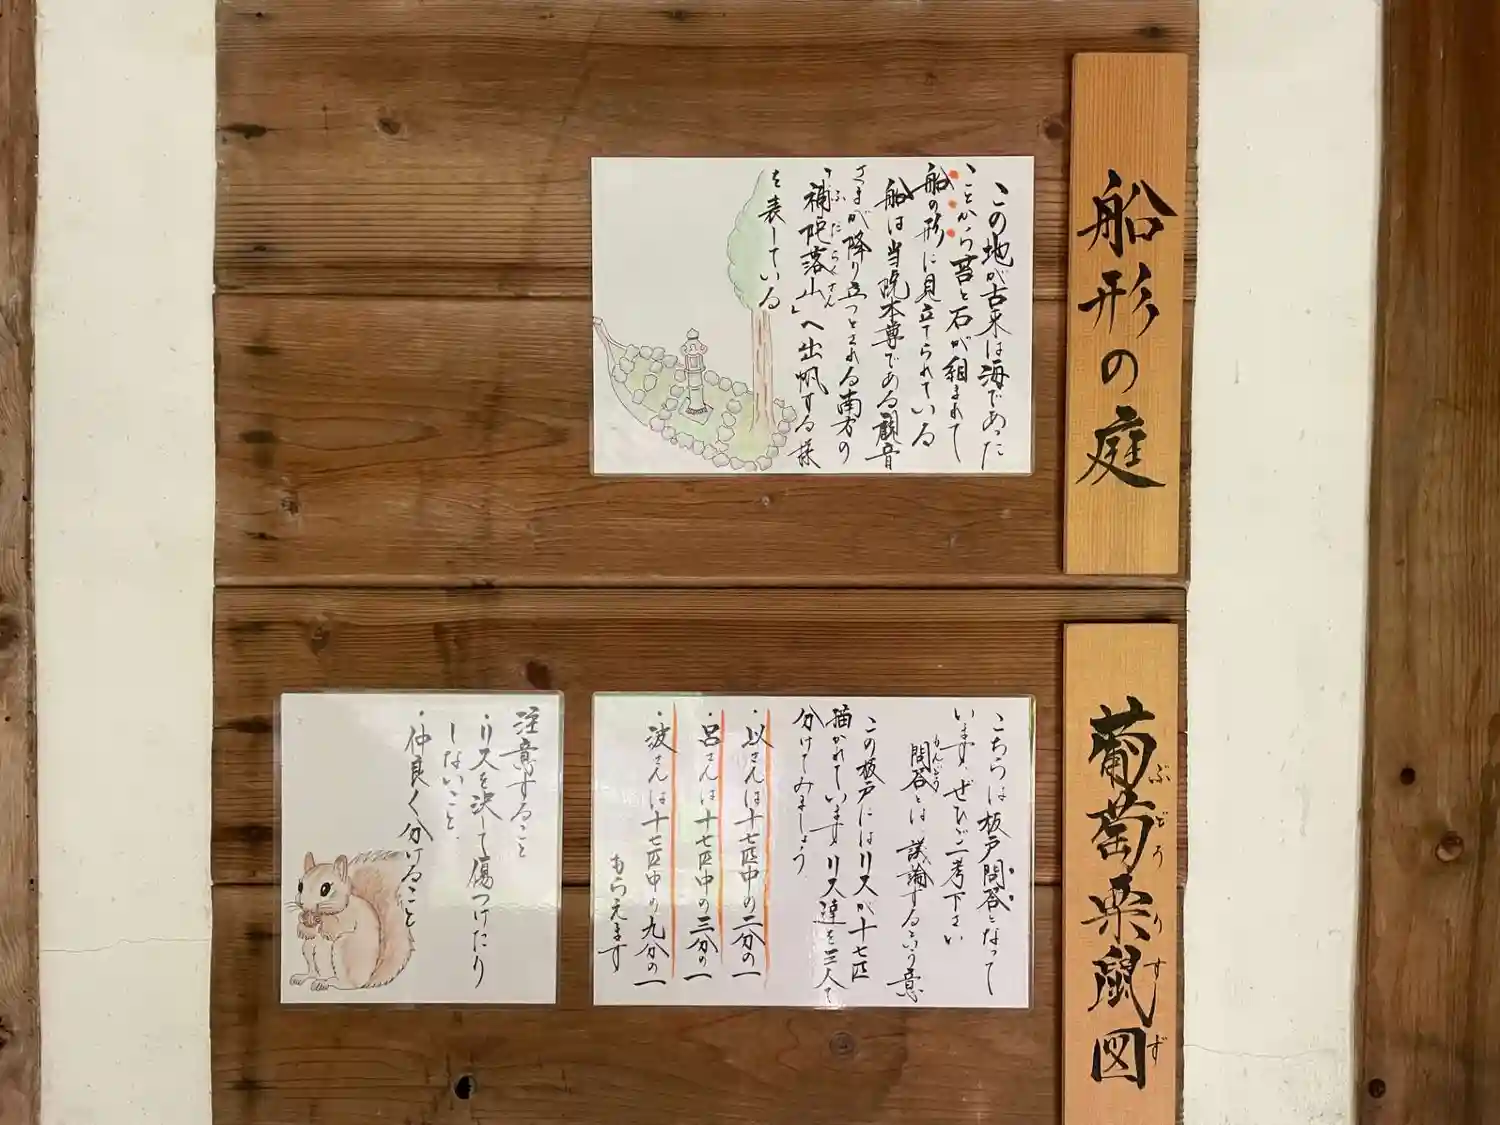 船形の庭
この地が古来は海であった
ことから苔と石が組まれて
船の形に見立てられている
船は当院本尊である観音
さまが降り立つとされる南方の
「補陀落山」へ出帆する様
ふだらくさん
を表している
葡萄栗鼠図
ぶどうりすず
こちらは板戸問答となって
います、ぜひご一考下さい
問答とは、議論する言う意
もんどう
この板戸にはリスが十七匹
描かれています、リス達を三人で
分けてみましょう
・以さんは十七匹中の二分の一
・呂さんは十七匹中の三分の一
・波さんは十七匹中の九分の一
もらえます
注意すること
・リスを決して傷つけたり
しないこと
・仲良く分けること